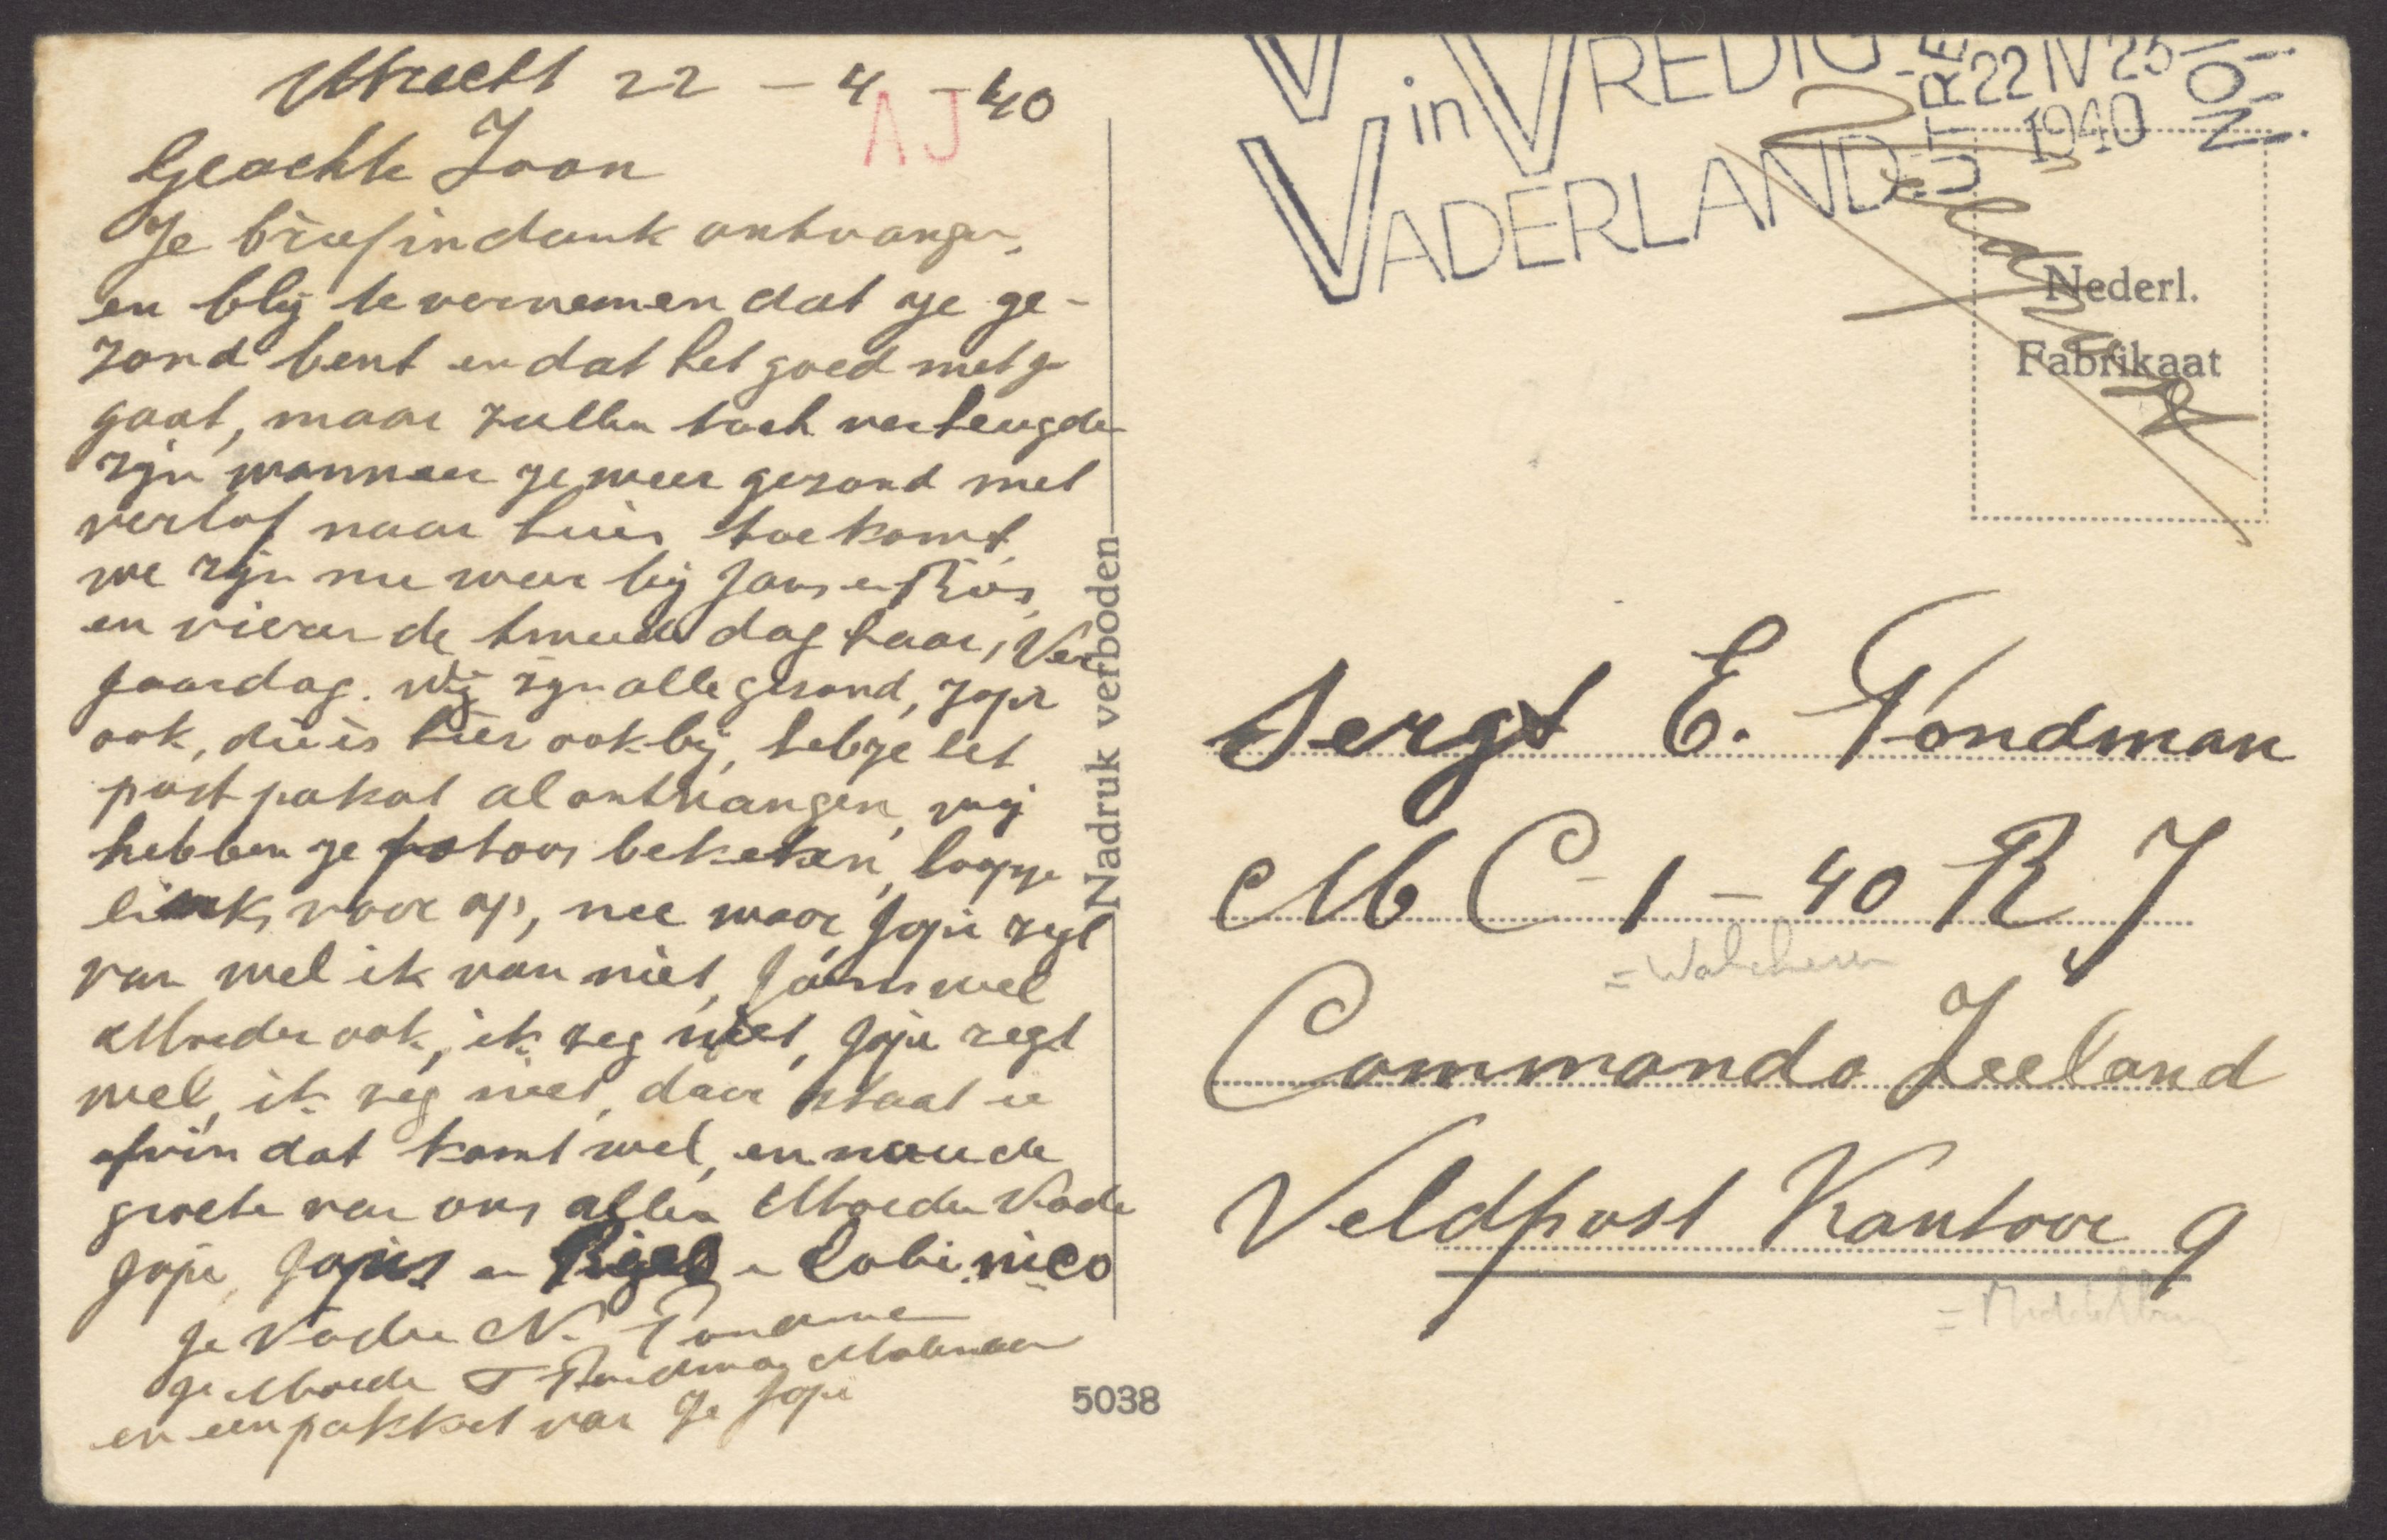 Utrecht 22 - 4 - 40
AJ
Geachte Zoon
Je brief in dank ontvangen,
en blij te vernemen dat je ge-
zond bent en dat het goed met je
gaat, maar zullen toch verheugde
zijn wanneer je weer gezond met
verlof naar huis toe komt,
we zijn nu weer bij Jans en
en vieren de tweede dag haar, Ver
jaardag. Wij zijn alle gezond, Jopie
ook, die is hier ook bij, heb je het
post pakat al ontvangen, wij
hebben je fotoos bekeken, loop je
links voor op, nee maar Jopie zegt
van wel ik van niet, Jans wel
Moeder ook, ik zeg niet, Jopie zegt
wel, ik zeg niet, daar staat
afvin dat komt wel, en nu de
groete van ons allen Moeder Vader
Jopie, en Lobi nico
Je Vader N. Pondman
Je Moeder T Pondman
en een pakket van Je Jopie
Nadruk verboden
5038
V in VREDIG
VADERLAND
UTRE
22 IV 23
1940
Nederl.
Fabrikaat
Sergt E. Pondman
MC-1-40 R J
= Walcheren
Commando Zeeland
Veldpost Kantoor 9